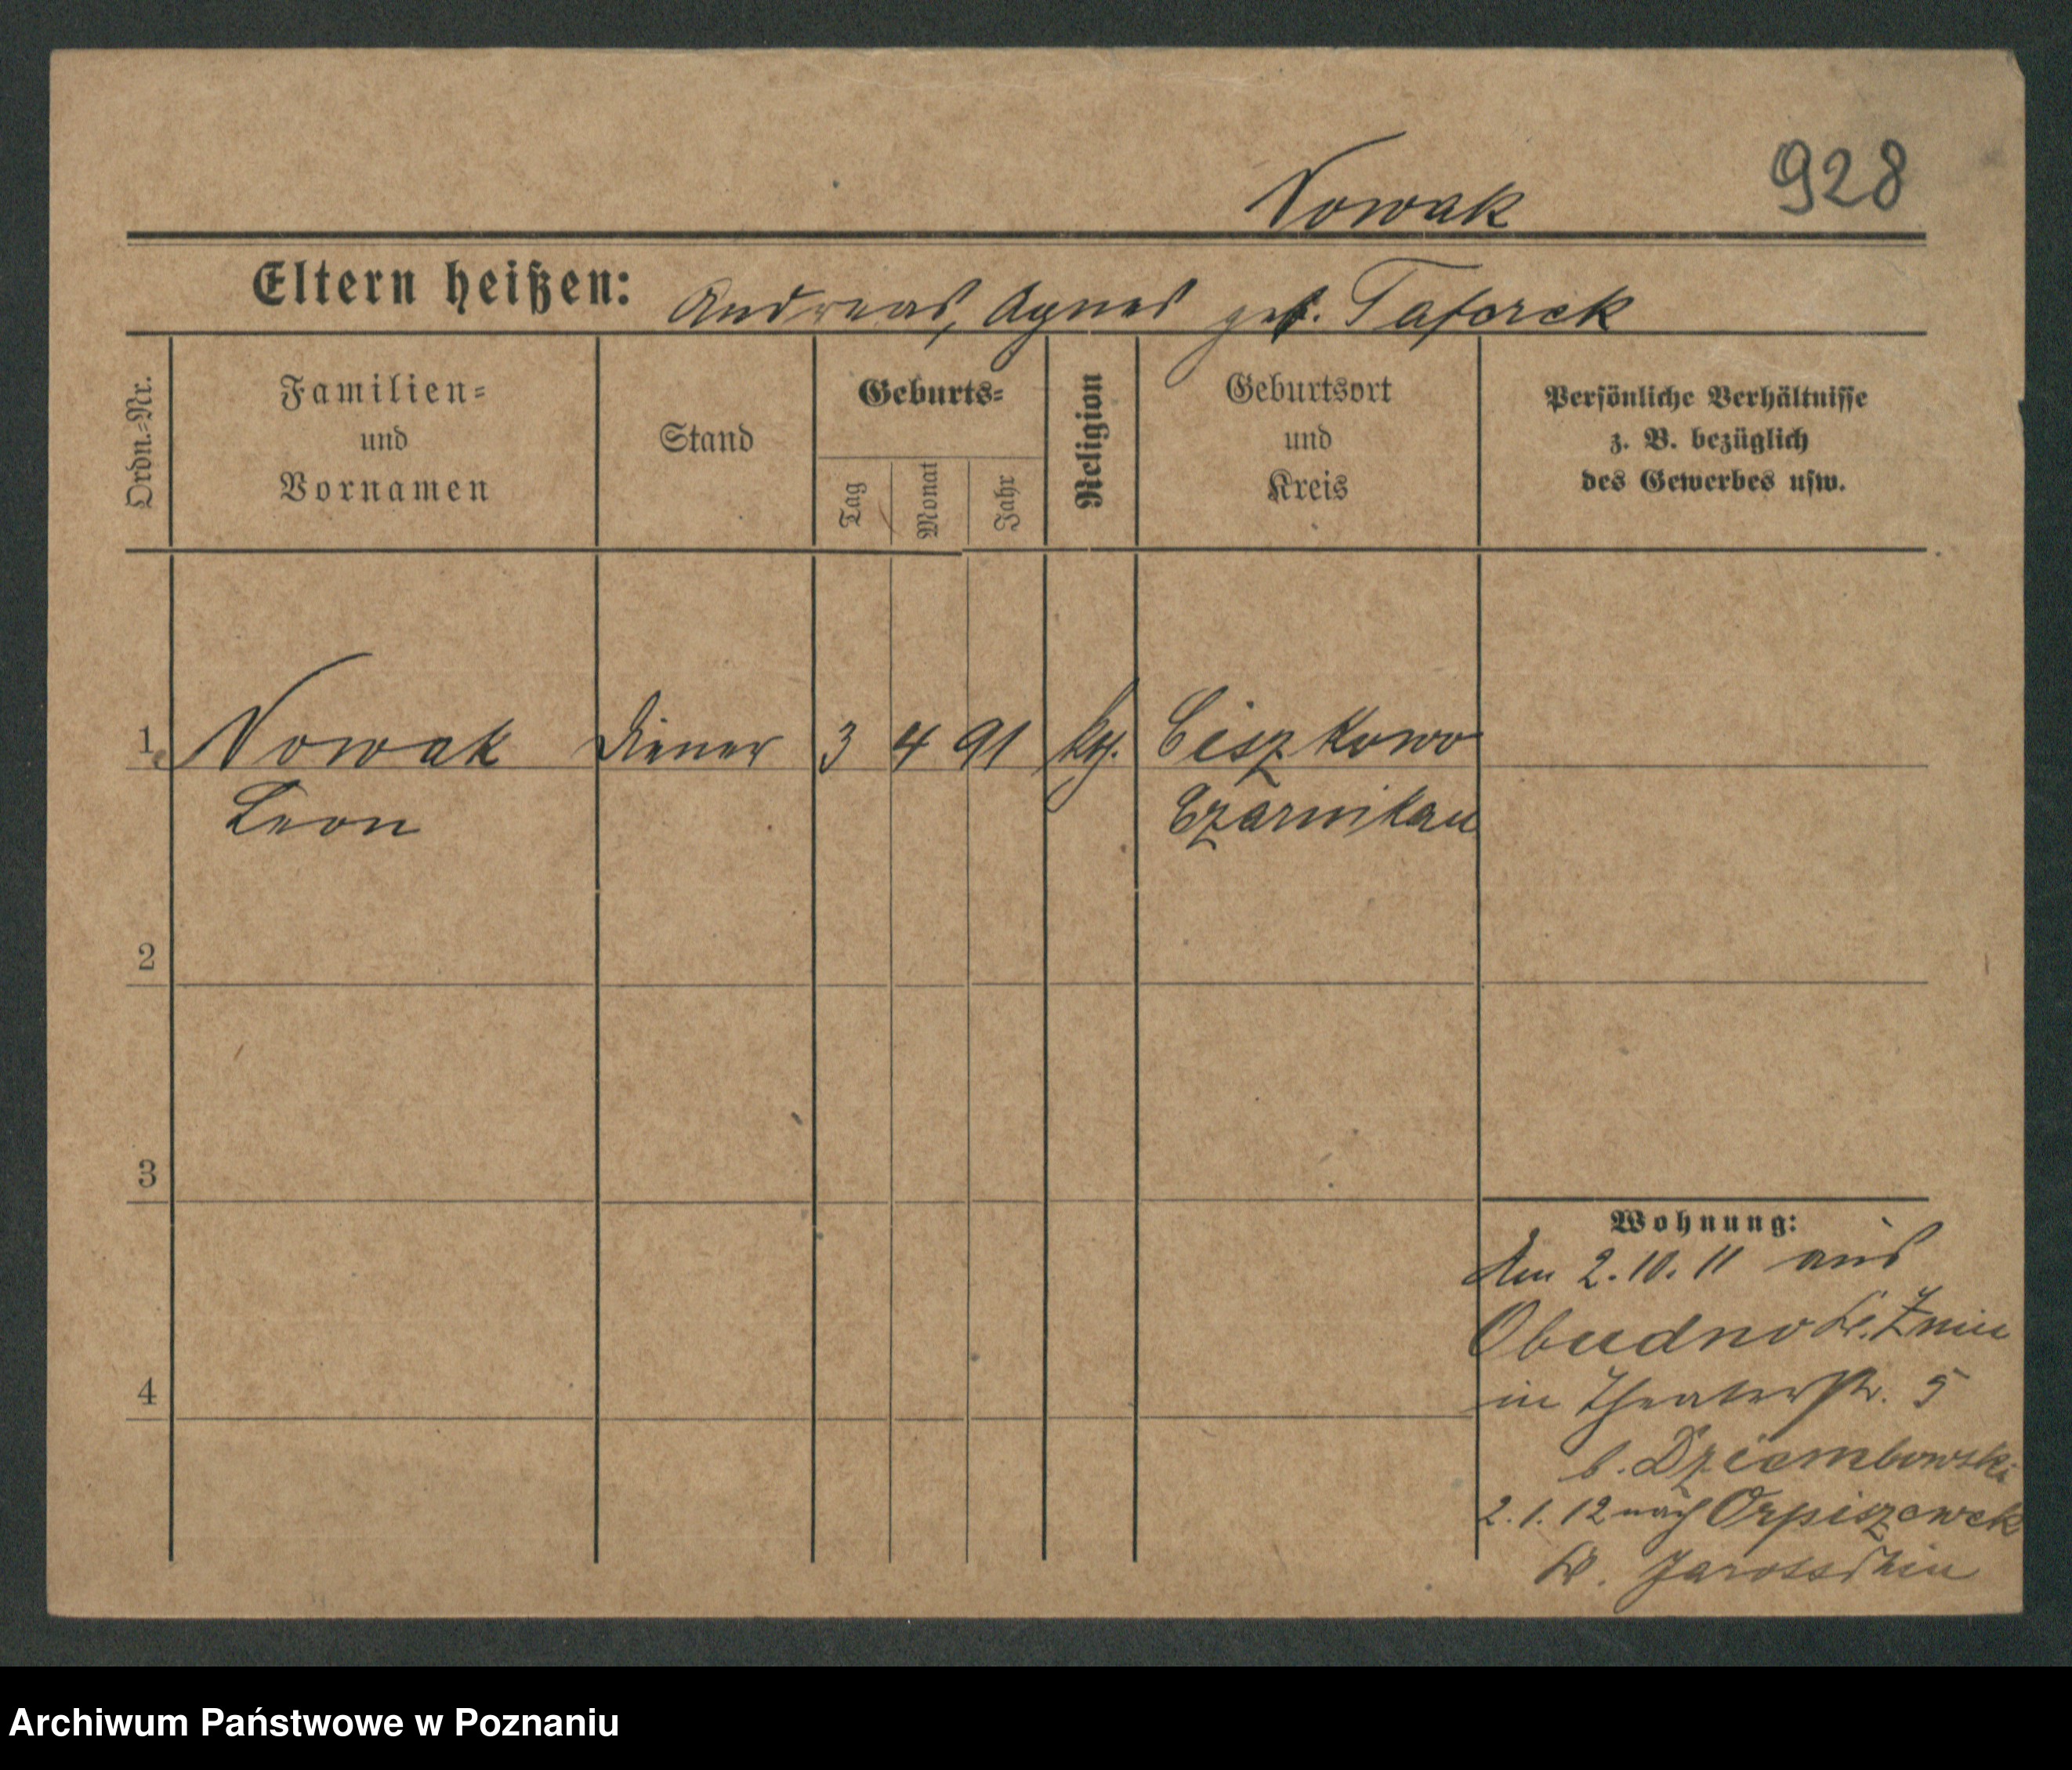 Nowak 928
Eltern heißen: Andreas, Agnes geb.
Ordn.=Nr.
Familien=
und
Vornamen
Stand
Geburts=
Tag
Monat
Jahr
Religion
Geburtsort
und
Kreis
Persönliche Verhältnisse
z. B. bezüglich
des Gewerbes usw.
1 Nowak Diener 3 4 91 kth. Ciszkowo
Leon Czarnikau
2
3
4
Wohnung:
Am 2.10.11 aus
Obudno Kr. Znin
in Theaterstr. 5
b. Dziembowski
2.1.12 nach Orpiszewek
Kr. Jarotschin
Archiwum Państwowe w Poznaniu